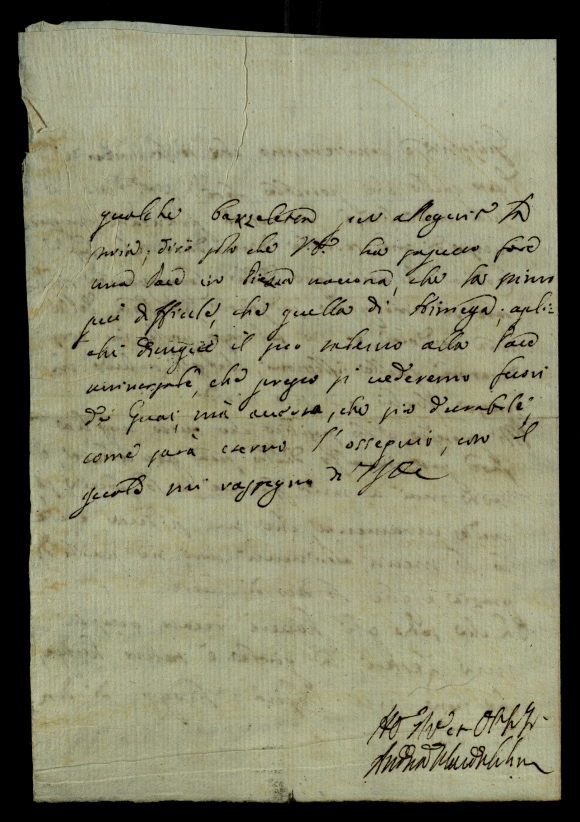 qualche barzeletta per allegerir la
noia; dirò solo che V.E. ha saputo fare
una Pace in Piazza navona, che la stimo
più difficile, che quella di Nimega; apli-
chi dunque il suo interno alla Pace
universale, che presto si vederemo fuori
de Guai, mà ancora, che sia durabile,
come sarà eterno l'ossequio, con il
quale mi rassegno di V.E.